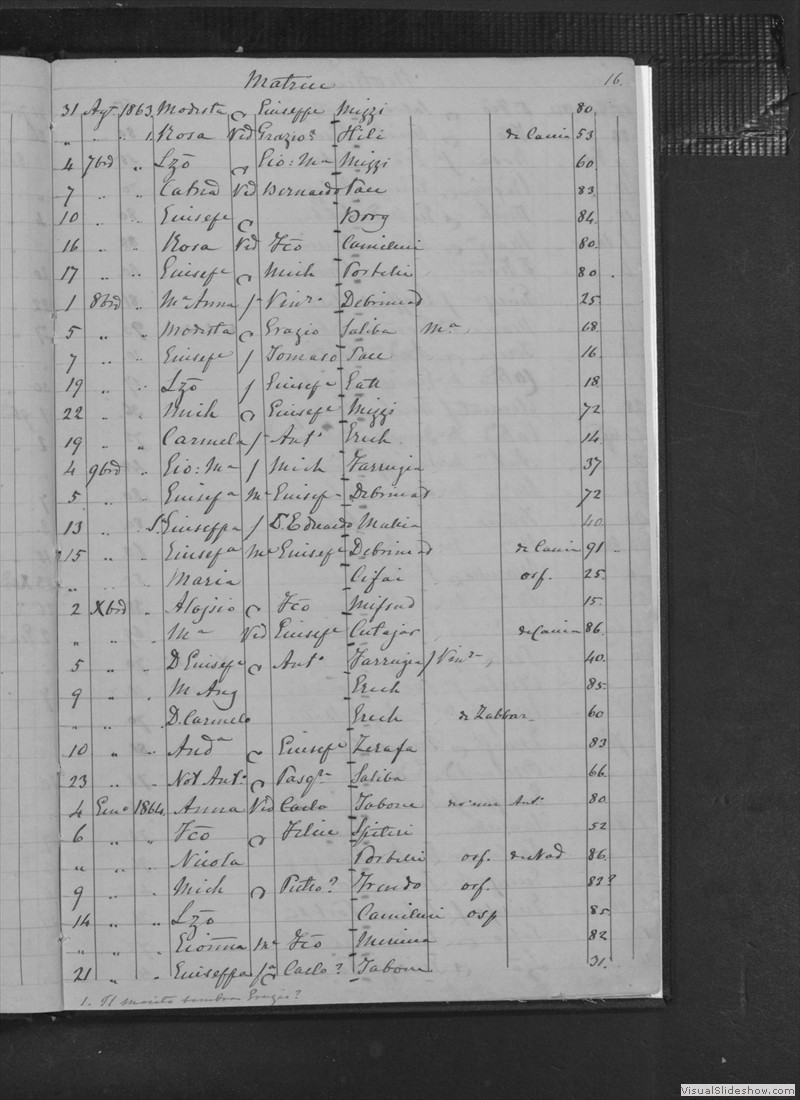 Matrice 16.
31 Agt. 1863. Modesta Giuseppe Mizzi 80.
" " " 1. Rosa Vid Grazio? Hili de Cauia 53
4 7brd " Lzō Gio: Ma Mizzi 60
7 " " Catrid Vid Bernardo Pace 83.
10 " " Giusefe Borg 84.
16 " " Rosa Vid Fcō Camilleri 80.
17 " " Giusefe Mich Portelli 80.
1 8brd " Ma Anna f Vinzo Debrincat 25.
5 " " Modesta Grazio Saliba Ma, 68.
7 " " Giusefe f Tomaso Pace 16.
19 " " Lzō f Giusefe Gatt 18.
22 " " Mich Giusefe Mizzi 72
19 " " Carmela f Anto Grech 14
4 9brd " Gio: Ma f Mich Farrugia 37
5 " " Giusefa Ma Giusefe Debrincat 72
13 " Sa Giuseffa f D. Eduardo Mallia 40.
15 " " Giusefa Ma Giusefe Debrincat de Cauia 91.
" " Maria Cifai osf. 25.
2 Xbrd " Alojsio Fcō Mifsud 15.
" " " Ma Vid Giusefe Cutajar de Cauia 86.
5 " " D Giusefe Anto Farrugia f Vinzo, 40.
9 " " M Ang Grech 85.
" " " D. Carmelo Grech de Zabbar 60
10 " " Anda Giusefe Zerafa 83
23 " " Not Anto Pasqle Saliba 66.
4 Geno 1864. Anna Vid Carlo Tabone Anto 80
6 " " Fcō Felice Spiteri 52
" " " Nicola Portelli osf. de Nad 86.
9 " " Mich Pietro? Frendo osf. 82?
14 " " Lzō Camilleri osp 85.
" " " Gioānna Ma Fcō Micallef 82
21 " " Giuseffa fa Carlo? Tabone 31.
1. Il marito sembra Grazio?
VisualSlideshow.com